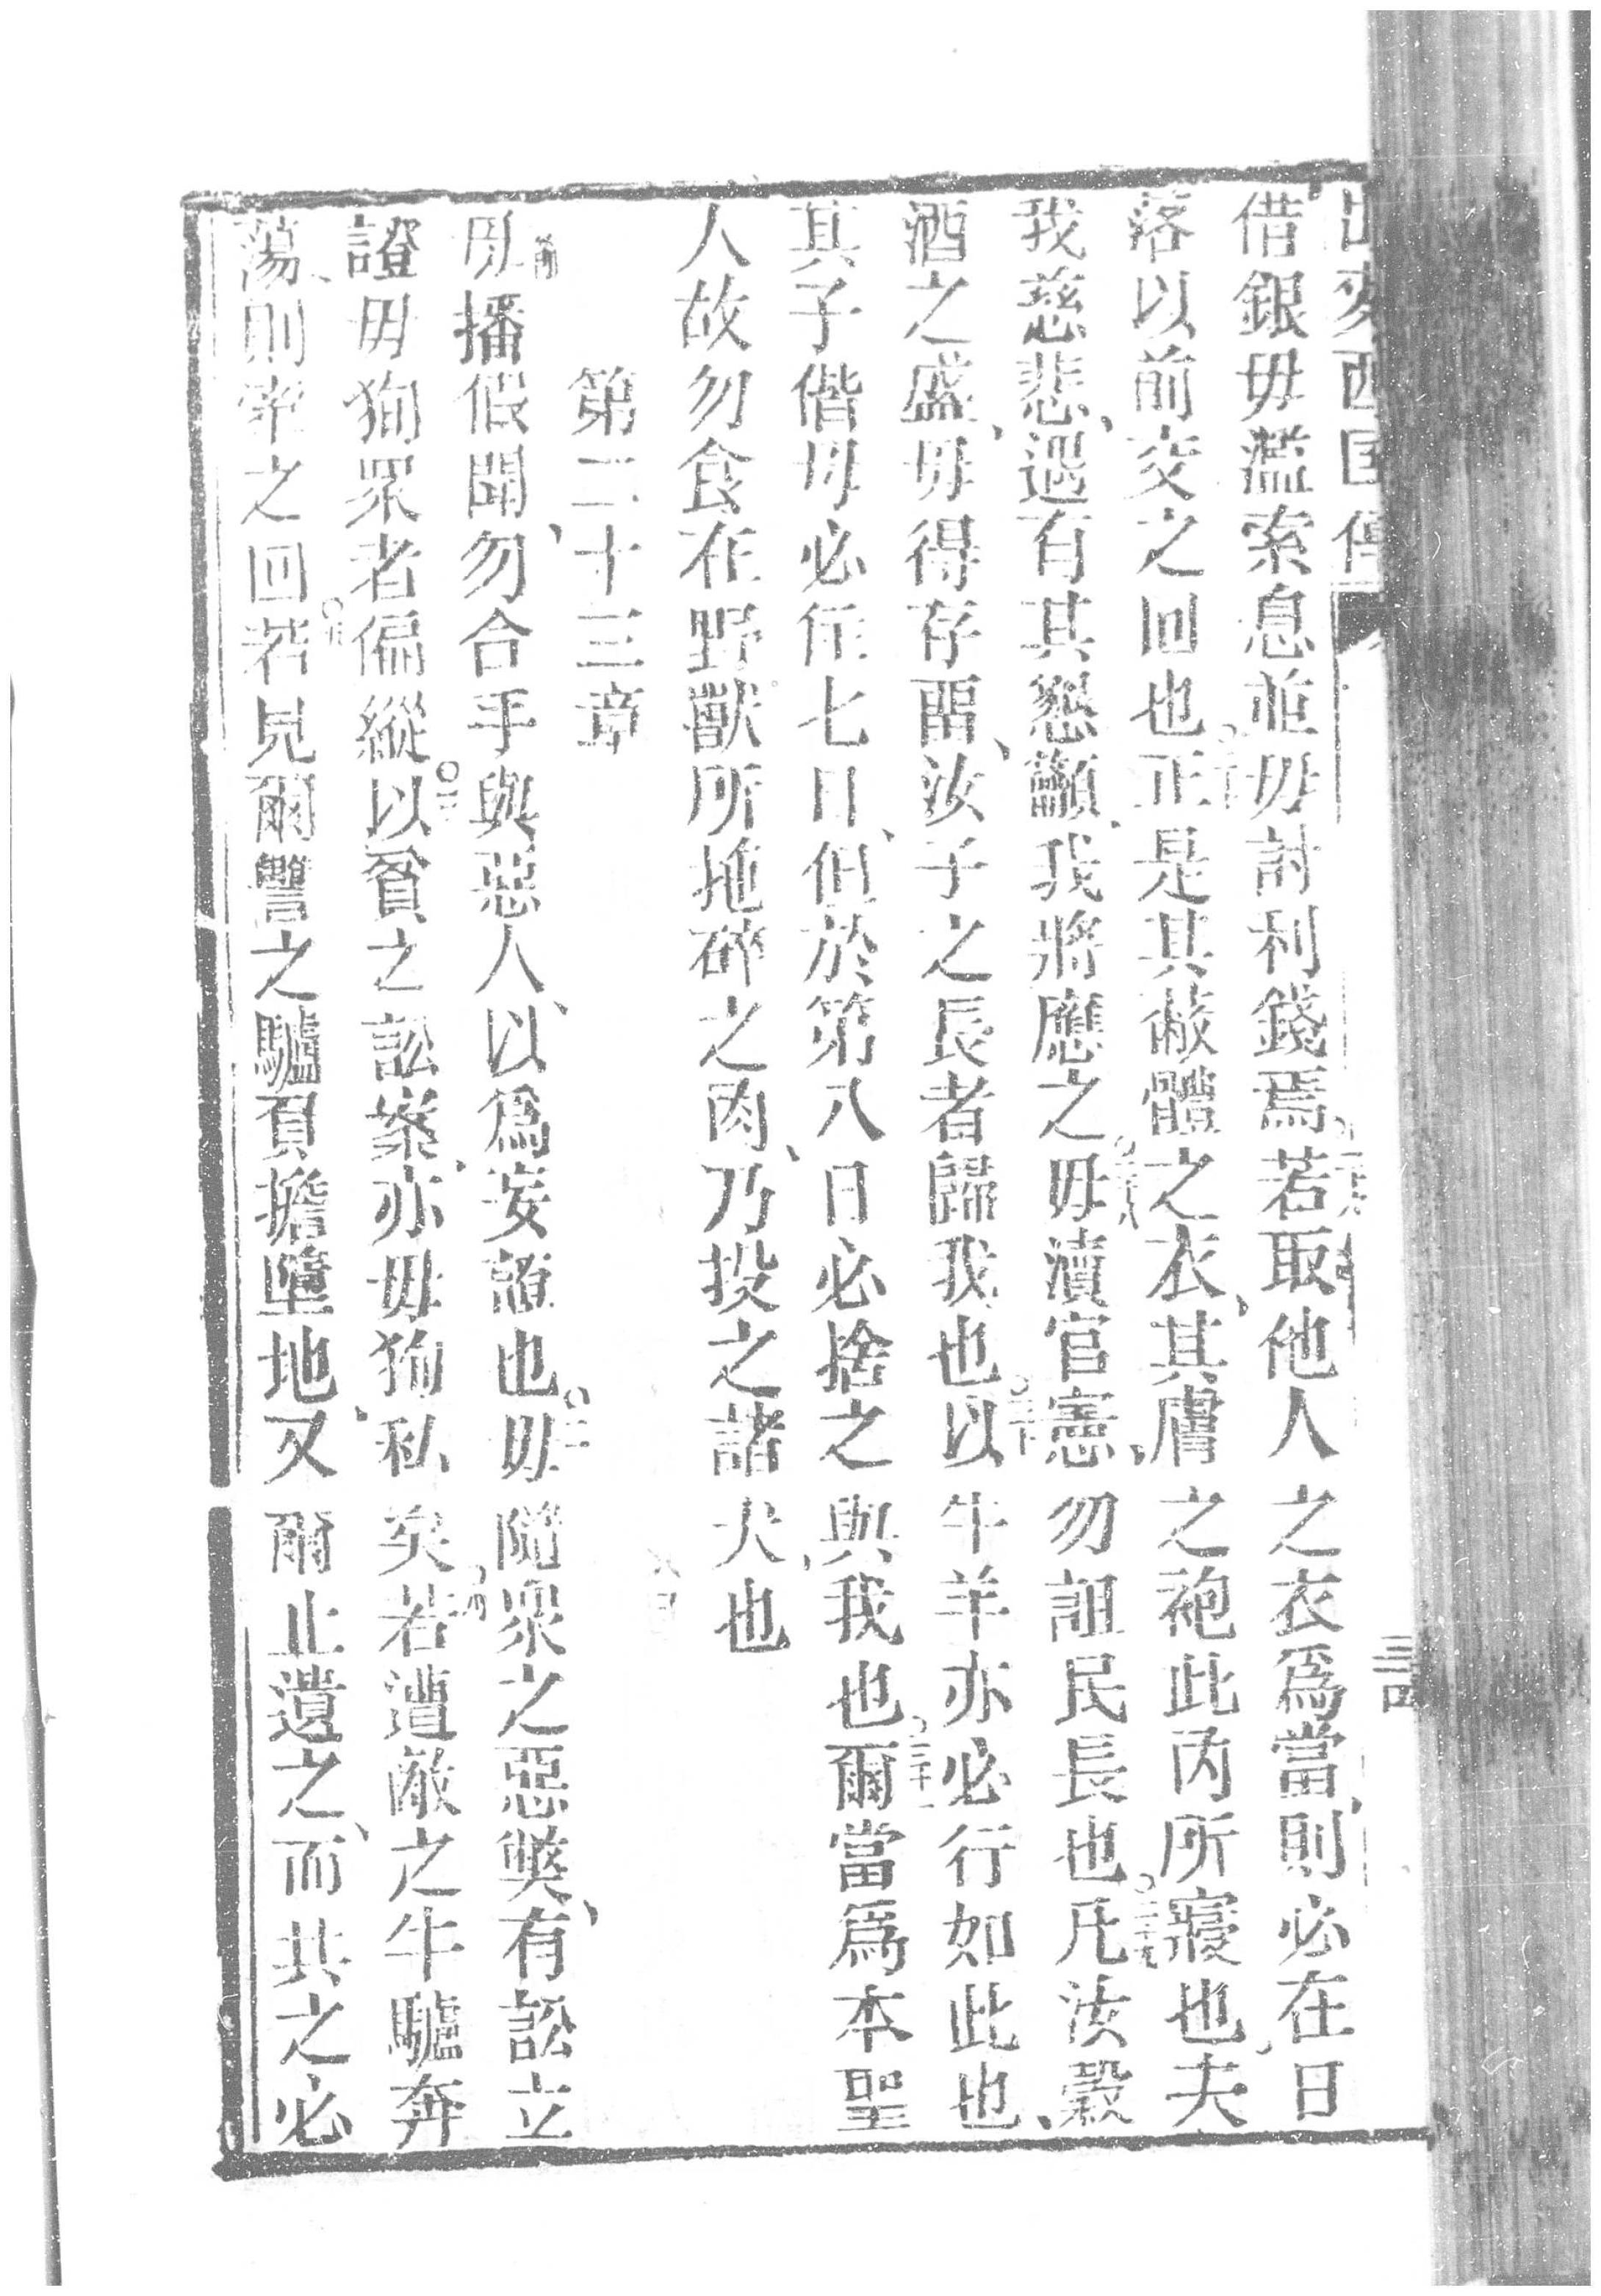 借銀毋濫索息並毋討利錢焉若取他人之衣爲當則必在日
落以前交之回也正是其蔽體之衣其膚之袍此內所寢也夫
我慈悲遇有其懇籲我將應之毋瀆官憲勿詛民長也凡汝穀
酒之盛毋得存畱汝子之長者歸我也以牛羊亦必行如此也
其子偕母必在七日但於第八日必捨之與我也爾當爲本聖
人故勿食在野獸所拖碎之肉乃投之諸犬也
第二十三章
毋播假聞勿合手與惡人以爲妄證也毋隨眾之惡獘有訟立
證毋狥眾者偏縱以貧之訟案亦毋狥私矣若遭敵之牛驢奔
蕩則牽之回若見爾讐之驢負擔墮地又爾止遺之而共之必